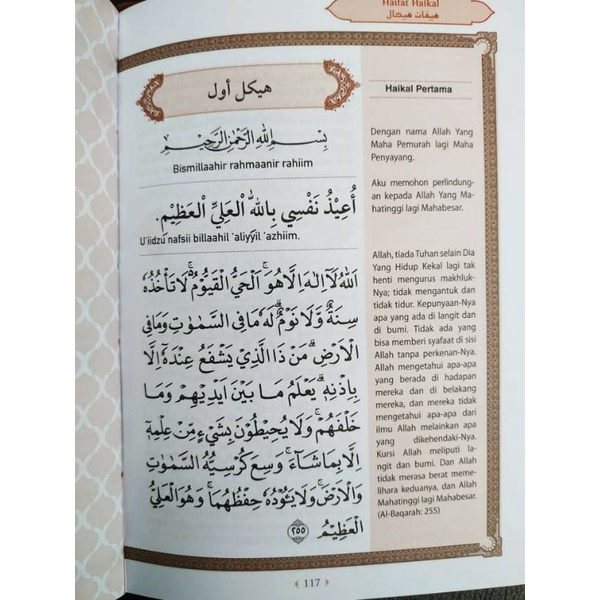 Haifat Haikal
هيفات هيكال
هيكل أول
بِسْمِ اللهِ الرَّحْمٰنِ الرَّحِيْمِ
Bismillaahir rahmaanir rahiim
أُعِيْذُ نَفْسِي بِاللهِ الْعَلِيِّ الْعَظِيْمِ.
U'iidzu nafsii billaahil 'aliyyil 'azhiim.
اَللّٰهُ لَآ اِلٰهَ اِلَّا هُوَۚ اَلْحَيُّ الْقَيُّوْمُ ەۚ لَا تَأْخُذُهٗ
سِنَةٌ وَّلَا نَوْمٌۗ لَهٗ مَا فِى السَّمٰوٰتِ وَمَا فِى
الْاَرْضِۗ مَنْ ذَا الَّذِيْ يَشْفَعُ عِنْدَهٗٓ اِلَّا
بِاِذْنِهٖۗ يَعْلَمُ مَا بَيْنَ اَيْدِيْهِمْ وَمَا
خَلْفَهُمْۚ وَلَا يُحِيْطُوْنَ بِشَيْءٍ مِّنْ عِلْمِهٖٓ
اِلَّا بِمَا شَاۤءَۚ وَسِعَ كُرْسِيُّهُ السَّمٰوٰتِ
وَالْاَرْضَۚ وَلَا يَـُٔوْدُهٗ حِفْظُهُمَاۚ وَهُوَ الْعَلِيُّ
الْعَظِيْمُ ٢٥٥
Haikal Pertama
Dengan nama Allah Yang
Maha Pemurah lagi Maha
Penyayang.
Aku memohon perlindung-
an kepada Allah Yang Ma-
hatinggi lagi Mahabesar.
Allah, tiada Tuhan selain Dia
Yang Hidup Kekal lagi tak
henti mengurus makhluk-
Nya; tidak mengantuk dan
tidak tidur. Kepunyaan-Nya
apa yang ada di langit dan
di bumi. Tidak ada yang
bisa memberi syafaat di sisi
Allah tanpa perkenan-Nya.
Allah mengetahui apa-apa
yang berada di hadapan
mereka dan di belakang
mereka, dan mereka tidak
mengetahui apa-apa dari
ilmu Allah melainkan apa
yang dikehendaki-Nya.
Kursi Allah meliputi la-
ngit dan bumi. Dan Allah
tidak merasa berat meme-
lihara keduanya, dan Allah
Mahatinggi lagi Mahabesar.
(Al-Baqarah: 255)
117